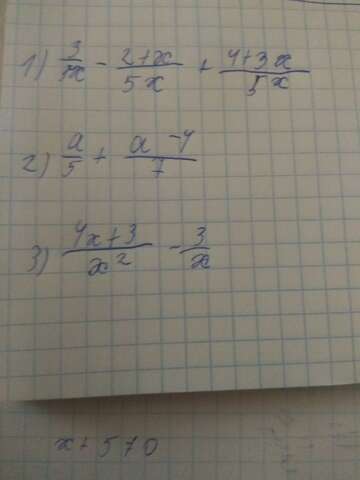 1) 3/5x - 2+x/5x + 4+3x/5x
2) a/5 + a-4/7
3) 4x+3/x² - 3/x
x+570